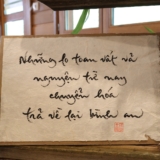 Những lo toan vất vả
nguyện từ nay
chuyển hóa
trả về lại bình an